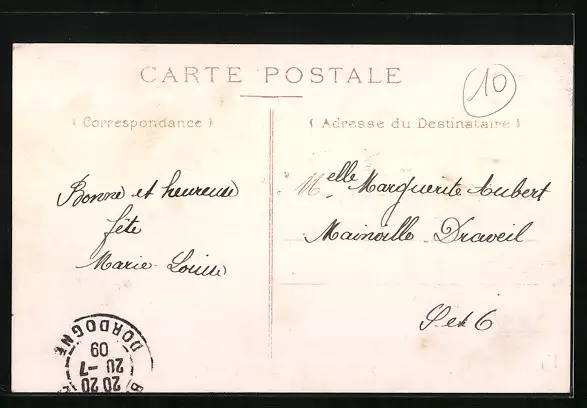 CARTE POSTALE
10
(Correspondance)
(Adresse du Destinataire)
Bonne et heureuse
fête
Marie-Louise
Melle Marguerite Aubert
Mainville Draveil
S et 6
DORDOGNE
20 20
20 -7
09